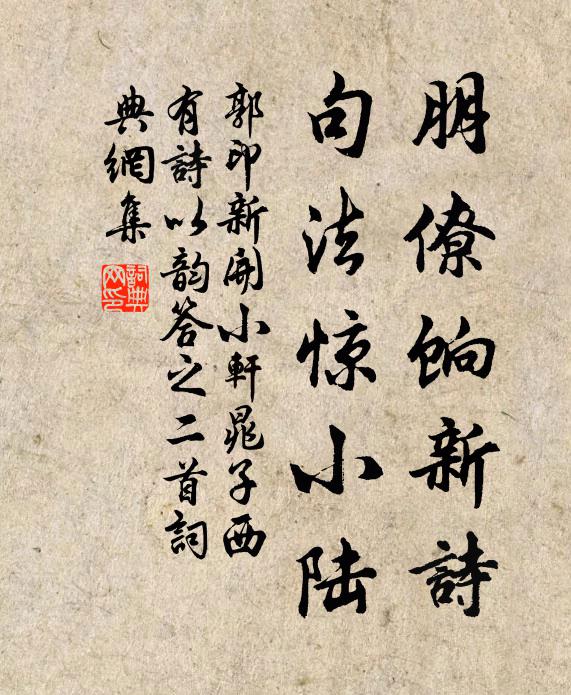 朋僚餉新詩
句法惊小陆
郭印新開小軒晁子西
有詩以韵答之二首詞
典網集
詞典網印